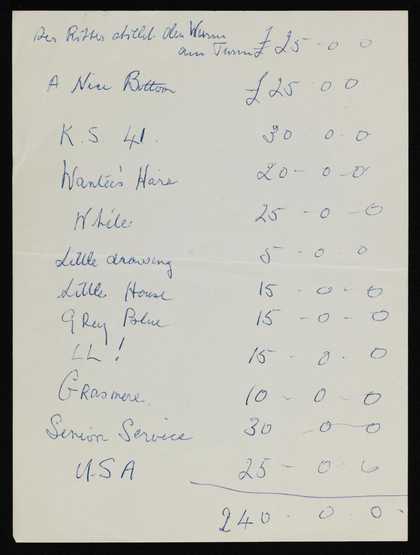 Der Ritter den Wurm
am Turm £ 25 - 0 0
A Nice Bottom £25 0 0
K. S 41. 30 0 - 0
Wantee's Hare 20 - 0 - 0
White 25 - 0 - 0
Little drawing 5 - 0 0
Little House 15 - 0 - 0
Grey Blue 15 - 0 - 0
LL ! 15 - 0 - 0
Grasmere. 10 - 0 - 0
Senior Service 30 - 0 - 0
USA 25 - 0 - 0
240 - 0 0 -